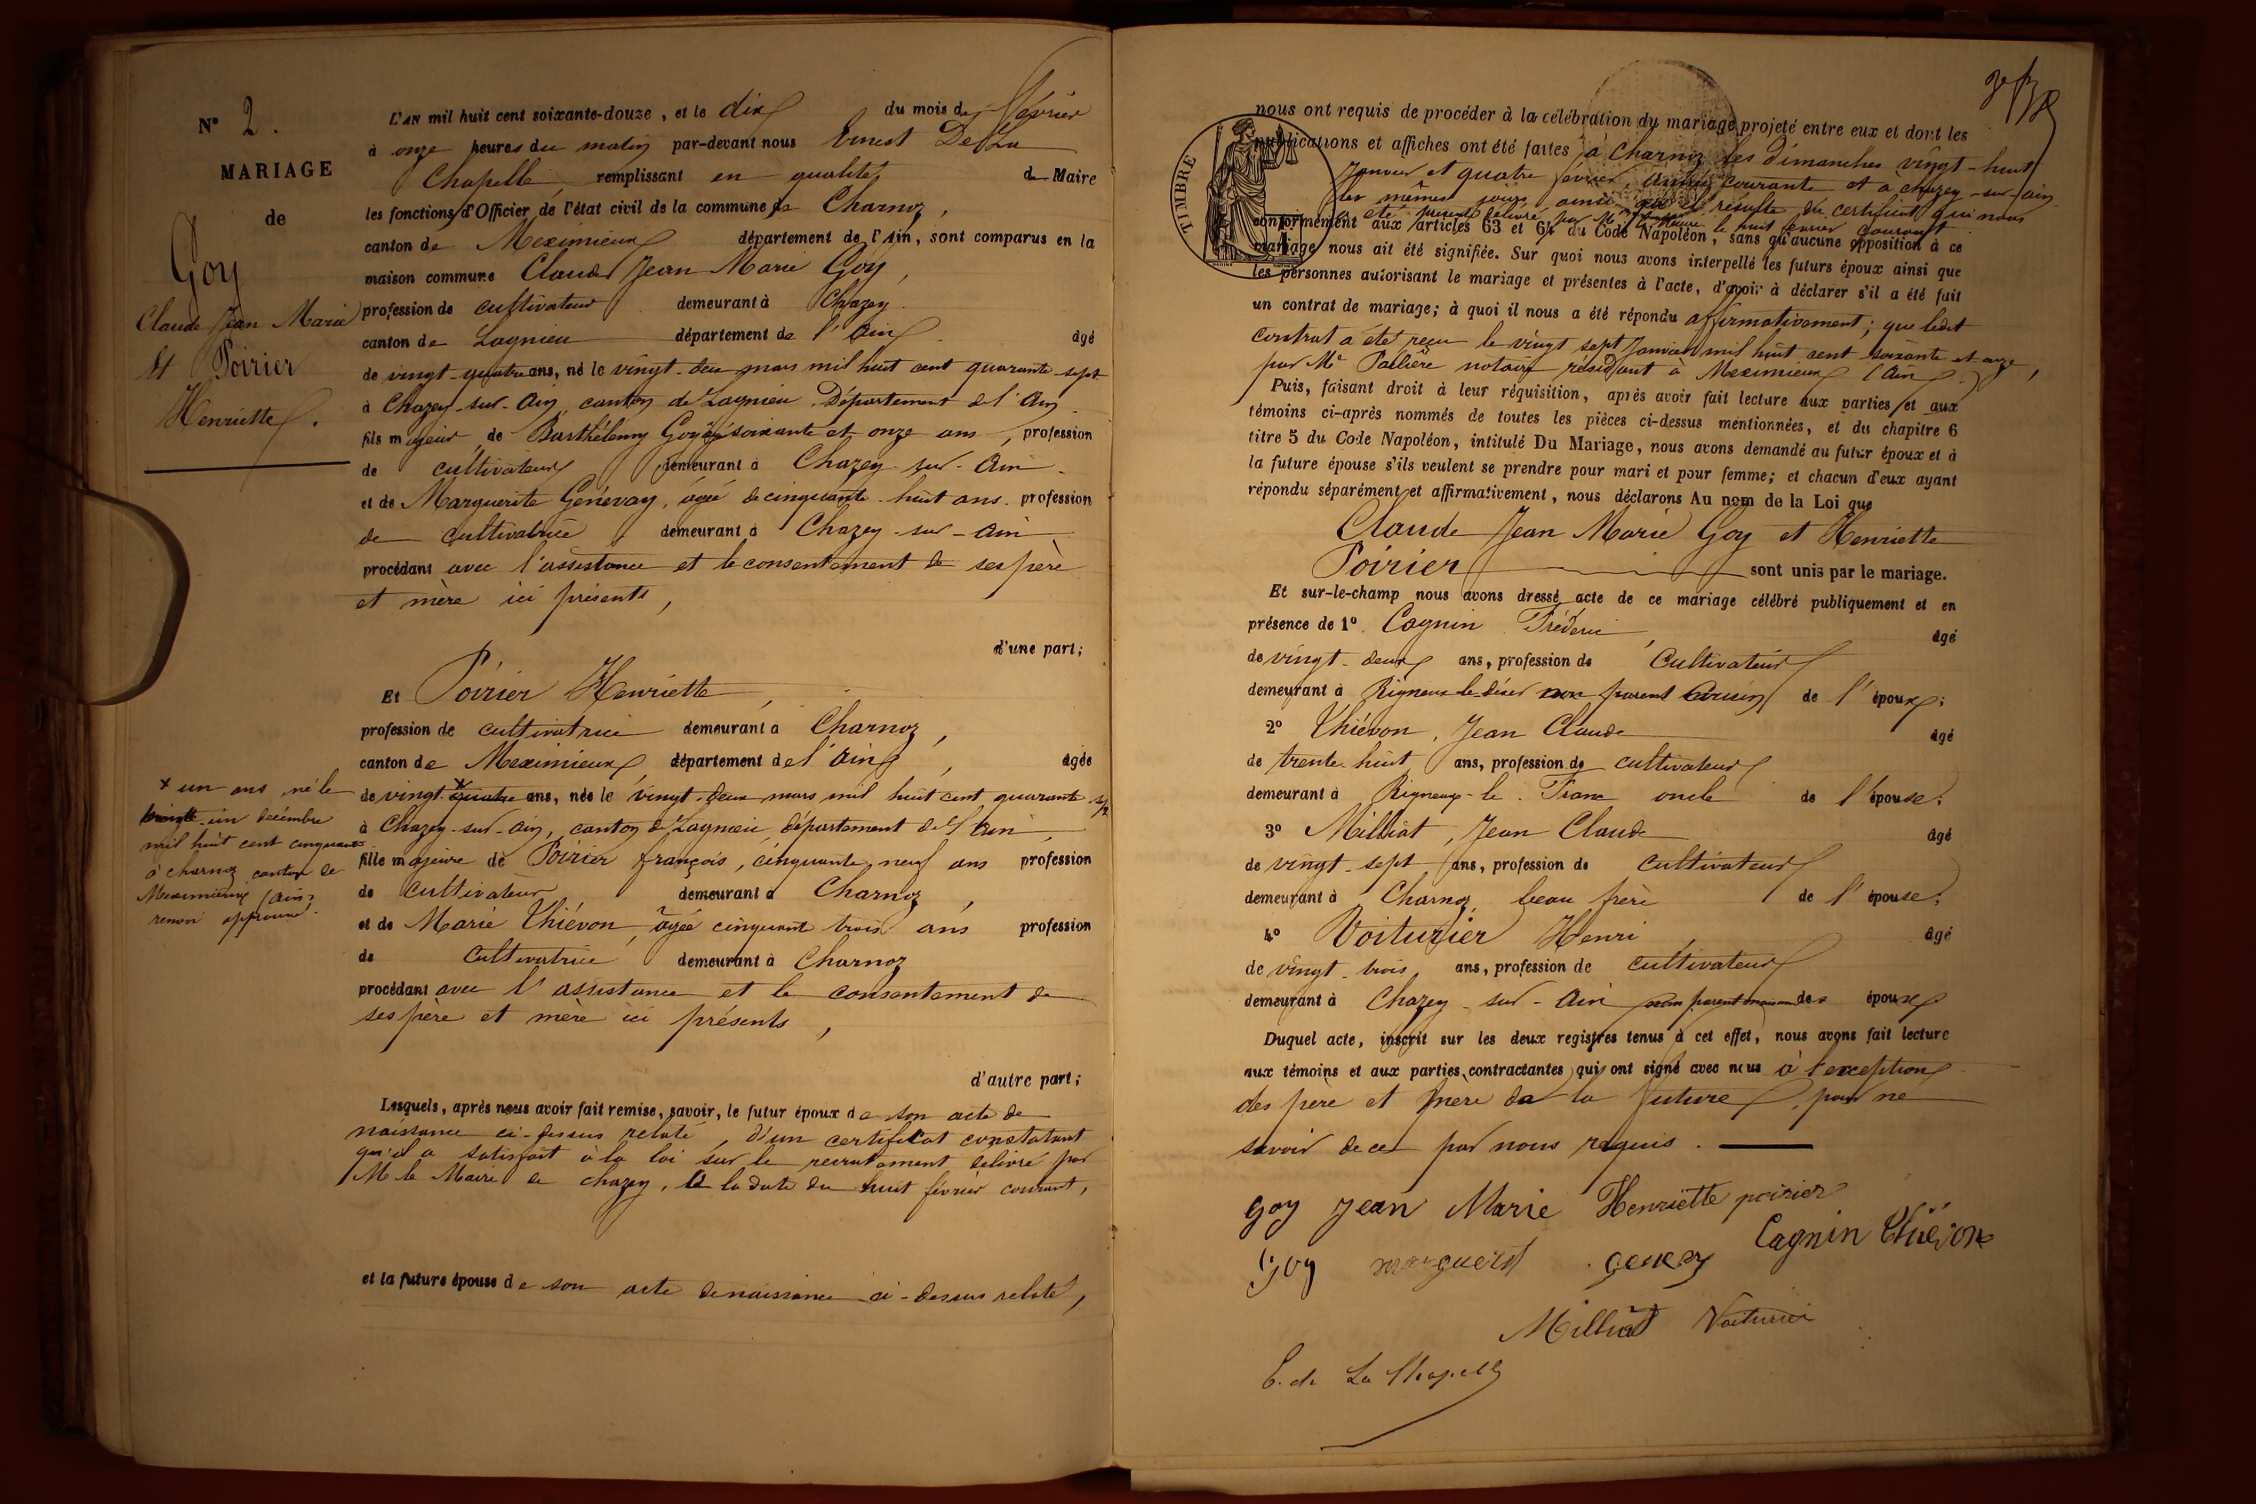 N° 2.
MARIAGE
de
Goy
Claude Jean Marie
et Poirier
Henriette.
L'AN mil huit cent soixante-douze, et le dix du mois de Février
à onze heures du matin par-devant nous Ernest De La
Chapelle remplissant en qualité de Maire
les fonctions d'Officier de l'état civil de la commune de Charnoz,
canton de Meximieux département de l'Ain, sont comparus en la
maison commune Claude Jean Marie Goy,
profession de cultivateur demeurant à Chazey
canton de Lagnieu département de l'Ain âgé
de vingt-quatre ans, né le vingt-deux mars mil huit cent quarante-sept
à Chazey-sur-Ain, canton de Lagnieu, Département de l'Ain
fils majeur de Barthélemy Goy, soixante et onze ans, profession
de cultivateur demeurant à Chazey-sur-Ain
et de Marguerite Génevay, âgée de cinquante-huit ans profession
de cultivatrice demeurant à Chazey-sur-Ain
procédant avec l'assistance et le consentement de ses père
et mère ici présents,
d'une part;
Et Poirier Henriette,
profession de cultivatrice demeurant à Charnoz,
canton de Meximieux, département de l'Ain, âgée
de vingt-quatre ans, née le vingt-deux mars mil huit cent quarante sept
à Chazey-sur-Ain, canton de Lagnieu, département de l'Ain,
fille majeure de Poirier françois, cinquante neuf ans profession
de cultivateur demeurant à Charnoz,
et de Marie Thiévon, âgée cinquante trois ans profession
de Cultivatrice demeurant à Charnoz
procédant avec l'assistance et le consentement de
ses père et mère ici présents,
d'autre part;
x un ans, né le
un décembre
mil huit cent cinquante
à charnoz canton de
Meximieux (Ain)
renvoi approuvé.
Lesquels, après nous avoir fait remise, savoir, le futur époux de son acte de
naissance ci-dessus relaté, d'un certificat constatant
qu'il a satisfait à la loi sur le recrutement délivré par
M. le Maire de chazey, à la date du huit février courant,
et la future épouse de son acte de naissance ci-dessus relaté,
nous ont requis de procéder à la célébration du mariage projeté entre eux et dont les
publications et affiches ont été faites à Charnoz les dimanches vingt-huit
Janvier et quatre février, année courante et à chazey-sur-ain
les mêmes jours ainsi qu'il résulte du certificat qui nous
a été présenté délivré par M. le Maire le huit février courant
conformément aux articles 63 et 64 du Code Napoléon, sans qu'aucune opposition à ce
mariage nous ait été signifiée. Sur quoi nous avons interpellé les futurs époux ainsi que
les personnes autorisant le mariage et présentes à l'acte, d'avoir à déclarer s'il a été fait
un contrat de mariage; à quoi il nous a été répondu affirmativement; que ledit
contrat a été reçu le vingt sept Janvier mil huit cent soixante et onze,
par Me notaire résidant à Meximieux (Ain).
Puis, faisant droit à leur réquisition, après avoir fait lecture aux parties et aux
témoins ci-après nommés de toutes les pièces ci-dessus mentionnées, et du chapitre 6
titre 5 du Code Napoléon, intitulé Du Mariage, nous avons demandé au futur époux et à
la future épouse s'ils veulent se prendre pour mari et pour femme; et chacun d'eux ayant
répondu séparément et affirmativement, nous déclarons Au nom de la Loi que
Claude Jean Marie Goy et Henriette
Poirier sont unis par le mariage.
Et sur-le-champ nous avons dressé acte de ce mariage célébré publiquement et en
présence de 1° Cagnin Fréderic, âgé
de vingt-deux ans, profession de Cultivateur
demeurant à Rigneux-le-désert non parent cousin de l'époux;
2° Thiévon, Jean Claude âgé
de trente-huit ans, profession de cultivateur
demeurant à Rigneux-le-Franc oncle de l'épouse;
3° Milliat, Jean Claude âgé
de vingt-sept ans, profession de cultivateur
demeurant à Charnoz, beau frère de l'épouse;
4° Voiturier Henri âgé
de vingt-trois ans, profession de cultivateur
demeurant à Chazey-sur-Ain non parent des époux
Duquel acte, inscrit sur les deux registres tenus à cet effet, nous avons fait lecture
aux témoins et aux parties contractantes qui ont signé avec nous à l'exception
des père et mère de la future, pour ne
savoir de ce par nous requis.
Goy Jean Marie Henriette poirier
Goy marguerit Cagnin Thiévon
Milliat Voiturier
E. de La Chapelle
TIMBRE